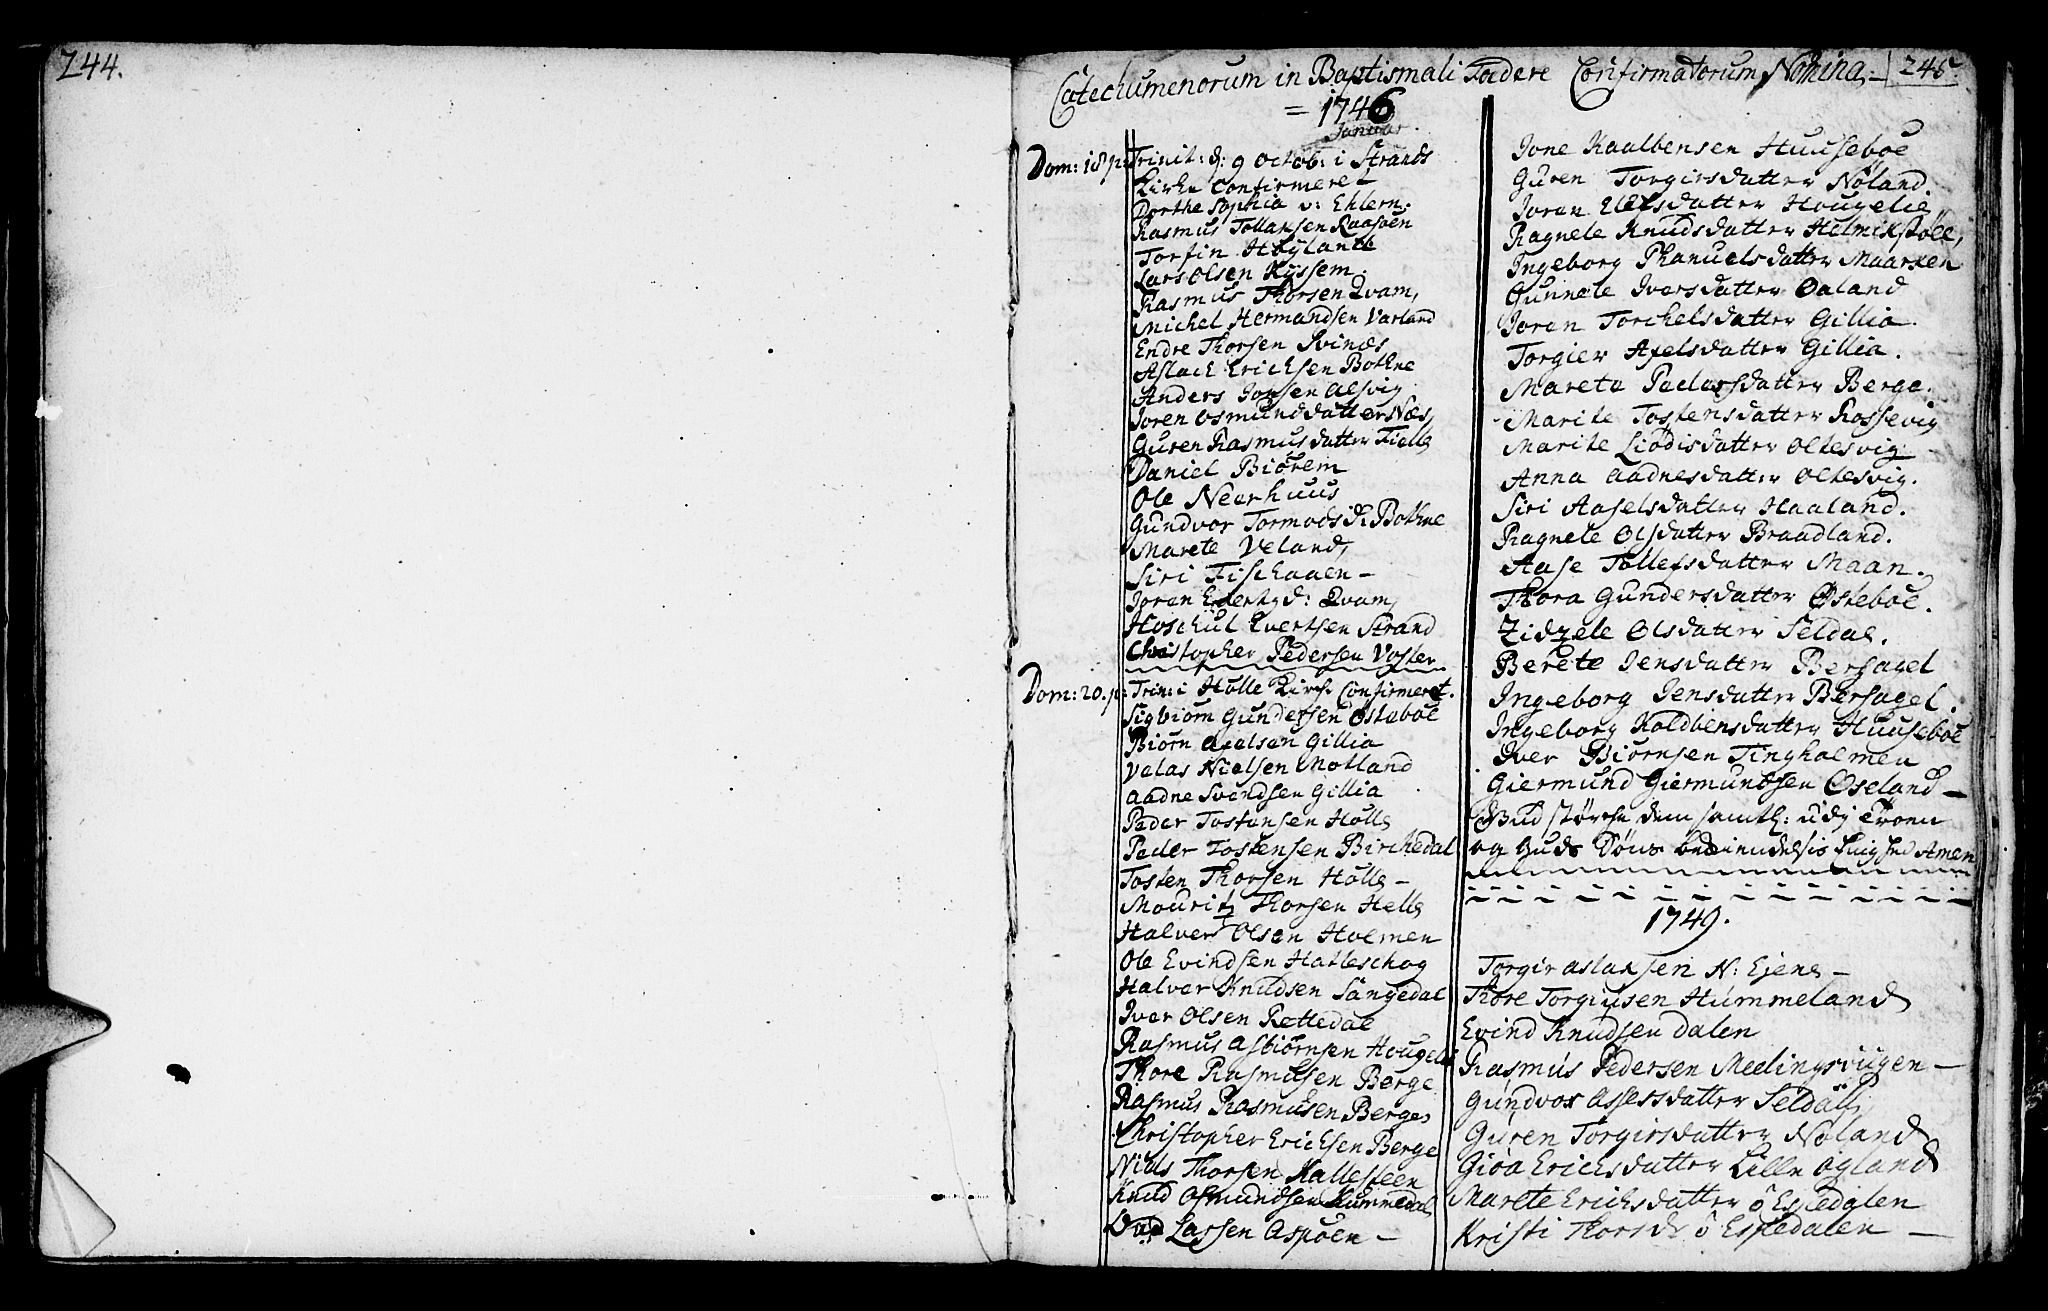 244.
Catechumenorum in Baptismali Fædere Confirmatorum Nomina 245.
= 1746
Januar.
Dom: 18 p: Trinit: d: 9 Octob: i Strands
Kirke Confirmeret
Dorthe Sophia v: Ehlern.
Rasmus Tollaksen Raasøen
Torfin Høyland
Lars Olsen Kyssem.
Rasmus Thorsen Qvam,
Michel Hermandsen Varland
Endre Thorsen Svines
Aslach Erichsen Bothne
Anders Jonsen Alsvig
Joren Osmunddatter Næs,
Guren Rasmusdatter Fielle
Daniel Biørem
Ole Neerhuus
Gundvor Tormods D: Bothne
Marete Veland,
Siri Fischaaen -
Joren d: Qvam,
Hoschul Evertsen Strand
Christopher Pedersen Voster
Dom: 20. p: Trin: i Holle Kirche Confirmeret.
Sigbiorn Gundersen Østeboe
Biørn Axelsen Gillia
Valas Nielsen Motland
Aadne Svendsen Gillia
Peder Tostensen Holle
Peder Tostensen Birchedal
Tosten Thorsen Holle -
Mouritz Thorsen Helle
Halver Olsen Holmen
Ole Evindsen Hatleschog
Halver Knudsen Sängedal
Iver Olsen Rettedal
Rasmus Asbiørnsen Hougelie
Thore Rasmusen Berge
Rasmus Rasmusen Berge,
Christopher Erichsen Berge
Niels Thorsen Hallesteen
Knud Osmundsen Hummedal
Lassen Aspøen -
Jone Kaalbensen Huuseboe
Guren Torgirsdatter Nøland.
Joren Olefsdatter Hougelie
Ragnele Knudsdatter Helmikstøle,
Ingeborg Phanuelsdatter Maarken
Gunnele Iversdatter Oaland
Joren Torchelsdatter Gillia.
Torgier Axelsdatter Gillia.
Marete Paedersdatter Berge.
Marite Tostensdatter Rossevig
Marite Liødisdatter Oltesvig
Anna Aadnesdatter Oltesvig.
Siri Axselsdatter Haaland.
Ragnele Olsdatter Braadland.
Aase Tollefsdatter Maan.
Thora Gundersdatter Østeboe.
Zidzele Olsdatter Seldal.
Berete Jensdatter Bersagel
Ingeborg Jensdatter Bersagel.
Ingeborg Koldbensdatter Huuseboe
Iver Biørnsen Tingholmen
Giermund Giermundsen Øseland -
Gud størche dem samtl: udj Troen
og Guds Søns Amen
1749.
Torgir Aslaksen N: Ejene -
Thore Torgiusen Hummeland
Evind Knudsen Dalen
Rasmus Pedersen Meelingsvugen -
Gundvor Assersdatter Seldal
Guren Torgirsdatter Nøland
Giøa Erichsdatter Lille Øgland
Marete Erichsdatter ö Espedalen
Kristi Thorsd: ö Espedalen -